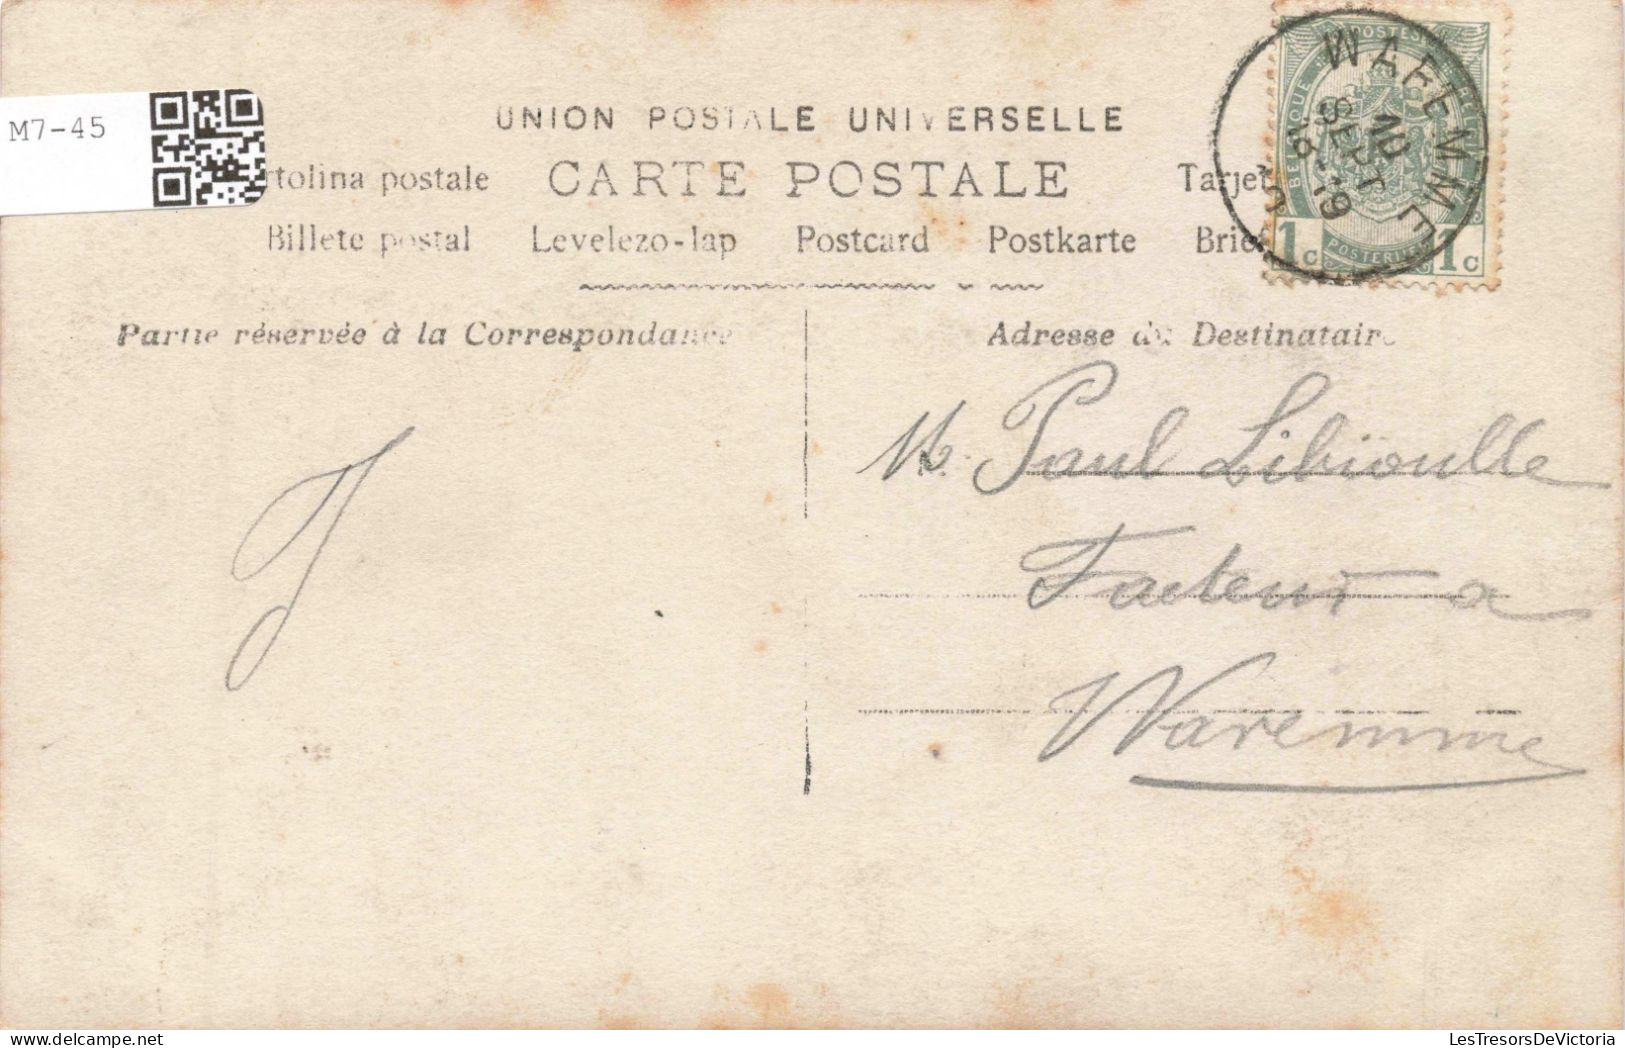 M7-45
UNION POSTALE UNIVERSELLE
rtolina postale CARTE POSTALE Tarjet
Billete postal Levelezo-lap Postcard Postkarte Brief
WAREMME
SEPT
18-19
POSTES
BELGIQUE
POSTERIJEN
1c 1c
Partie réservée à la Correspondance
Adresse du Destinataire
M. Paul Libioulle
Facteur a
Waremme
LesTresorsDeVictoria